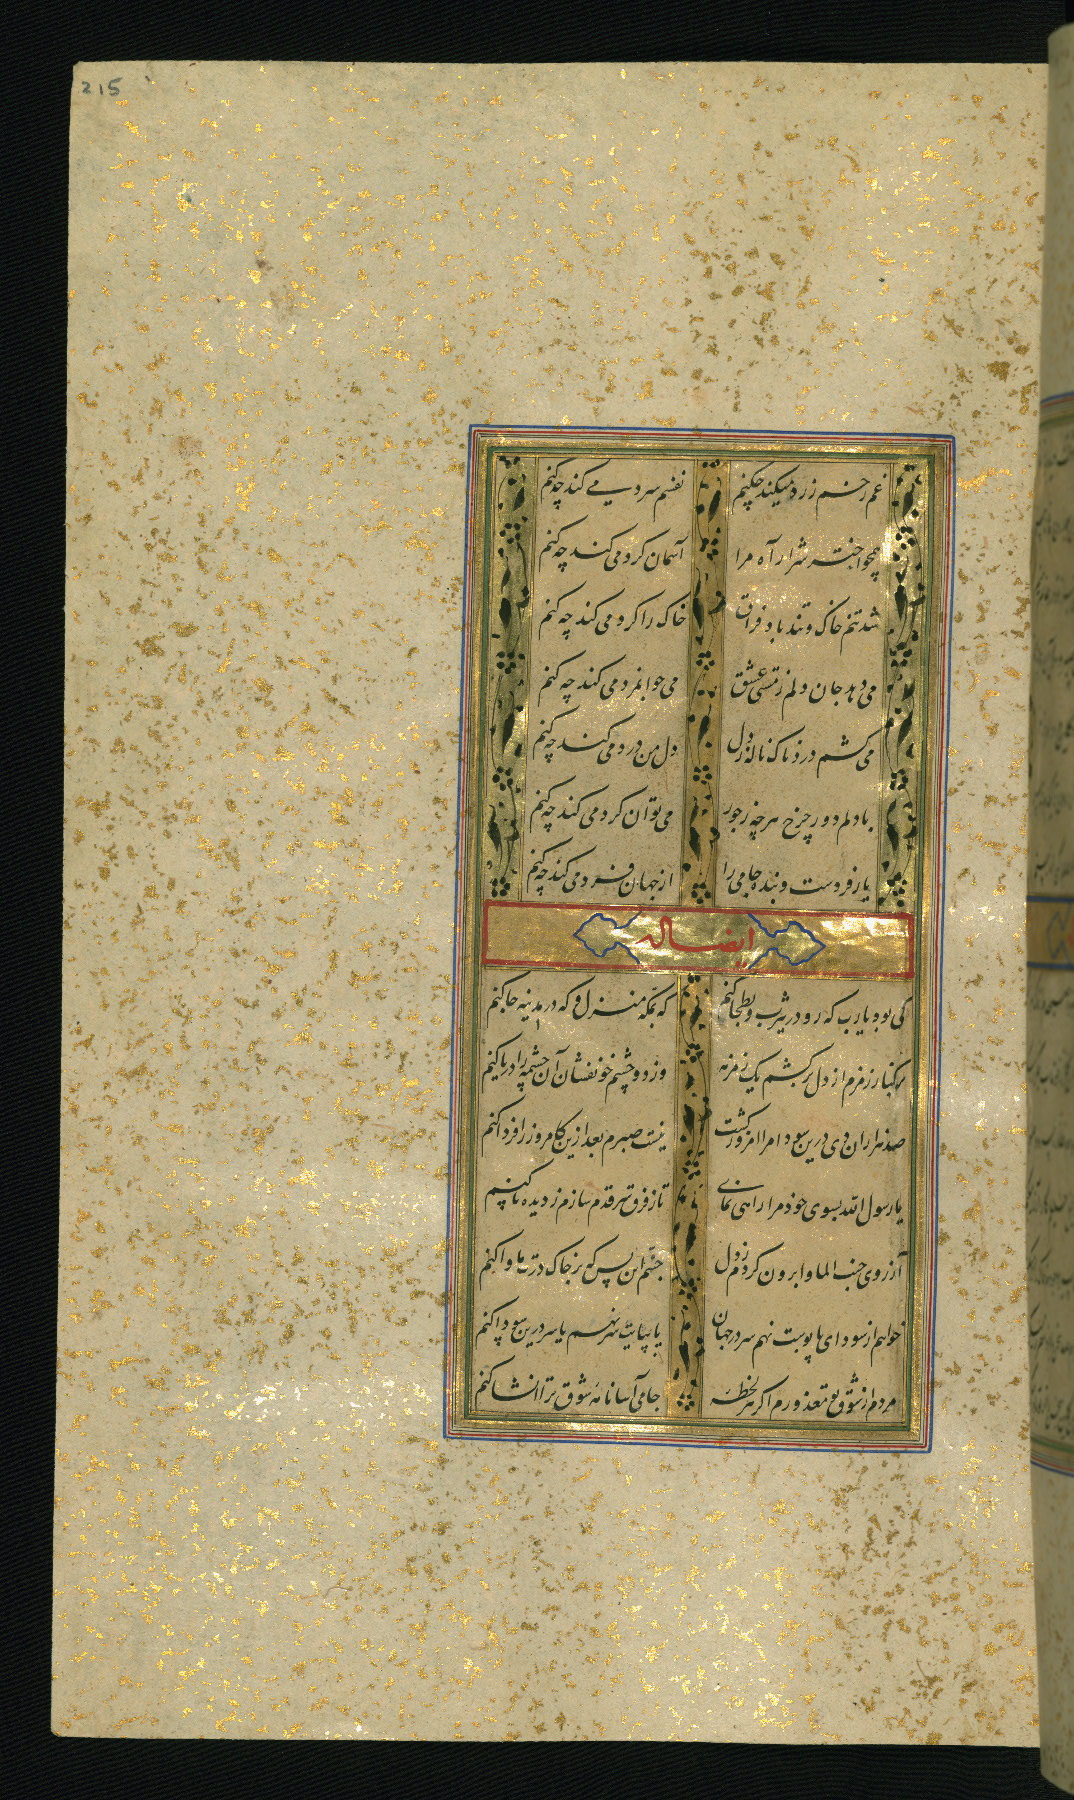 215
غم رخم زرد میکند چکنم نفسم سرد می کند چه کنم
همچو اختر شرار آه مرا آسمان کرد می کند چه کنم
شد تنم خاک و تند باد فراق خاک را کرد می کند چه کنم
می دهد جان دلم ز عشق می جوانمرد می کند چه کنم
می کشم دردناک ناله ز دل دل من درد می کند چه کنم
با دلم دور چرخ هر چه ز جور می توان کرد می کند چه کنم
یار فردست و بنده جامی را از جهان فرد می کند چه کنم
ایضا له
کی بود یارب که رو در یثرب و بطحا کنم که بمکه منزل و که در مدینه جا کنم
بر کنار زمزم از دل بر کشم یک زمزمه وز دو چشم خونفشان آن چشمه را دریا کنم
صد هزاران دی درین سودا مرا امروز گشت نیست صبرم بعد ازین کامروز را فردا کنم
یا رسول الله بسوی خود مرا راهی نمای تا ز فرق سر قدم سازم ز دیده پا کنم
آرزوی جنت الماوا برون کردم ز دل جنتم این بس که بر خاک درت ماوا کنم
خواهم از سودای پابوست نهم سر در جهان یا بپایت سر نهم یا سر درین سودا کنم
مردم از شوق تو معذورم اگر هر لحظه جامی آسا نامه شوق ترا انشا کنم